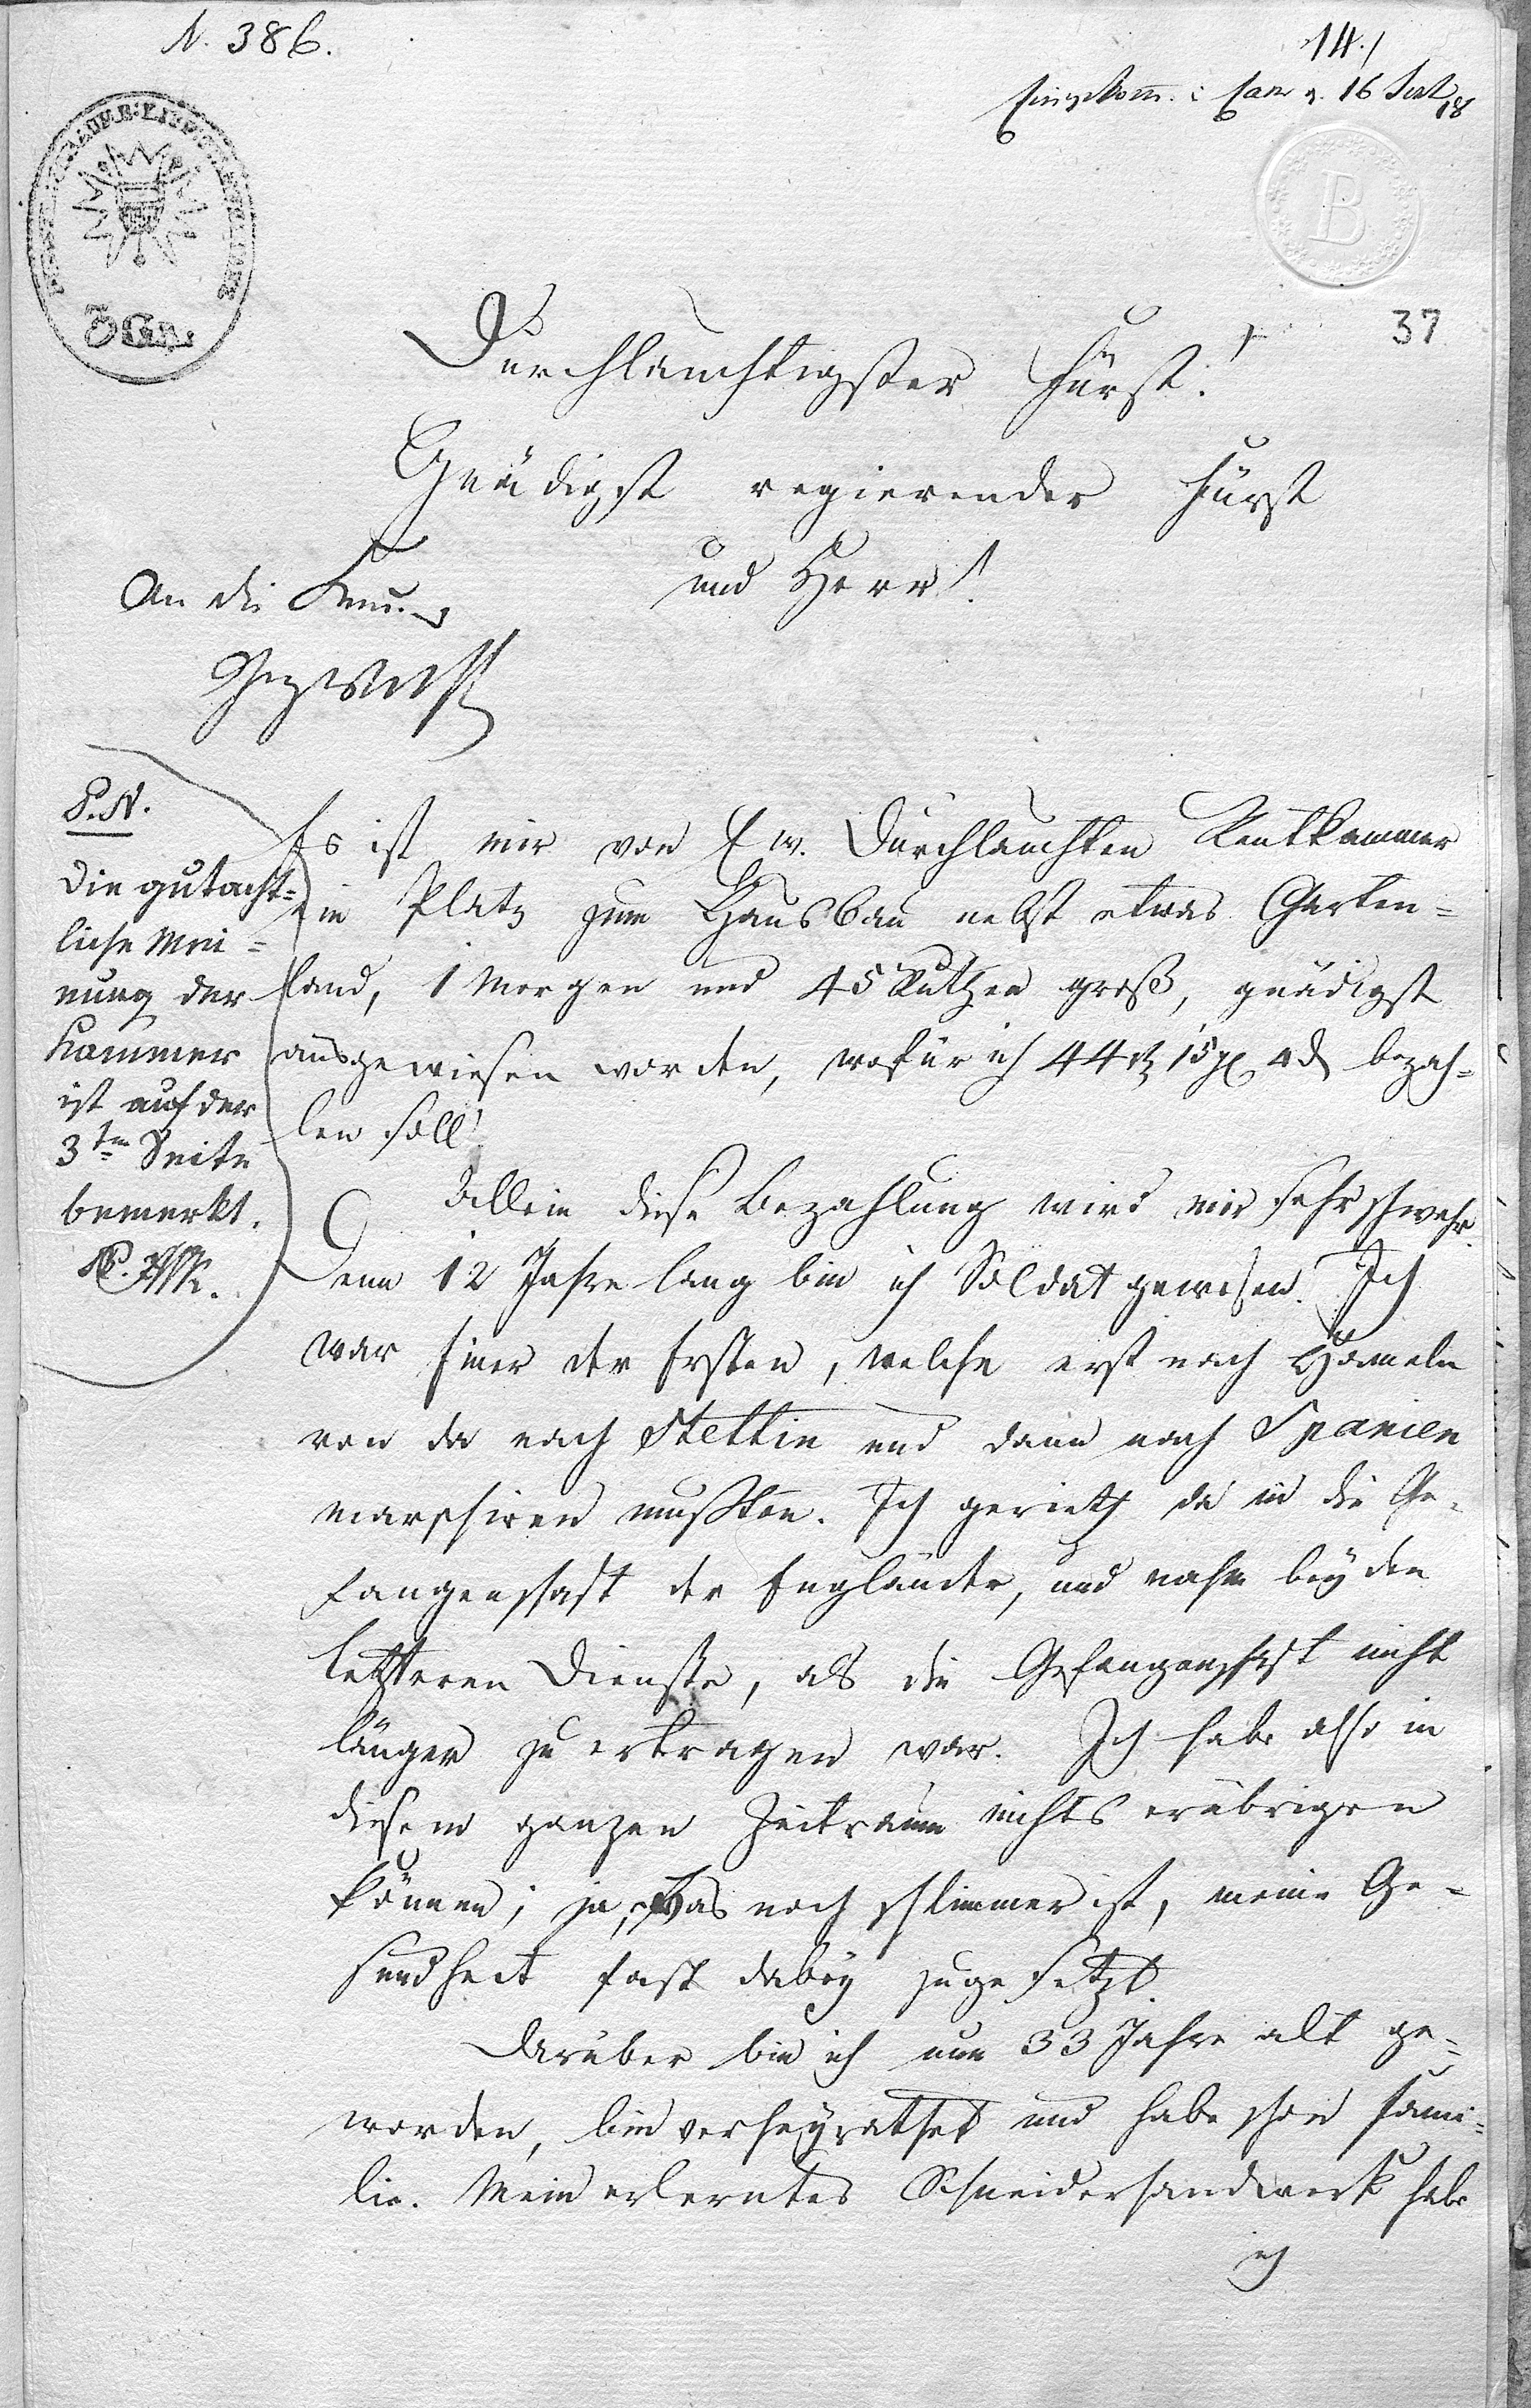 N. 386.
14.
Eingekom. i Cam d. 16 Sept 18
B
3 Gr.
37
Durchlauchtigster Fürst!
Gnädigst regierender Fürst
und Herr!
An die Kam.
P. N.
Die gutacht=
liche Mei=
nung der
Kammer
ist auf der
3ten Seite
bemerkt.
Es ist mir von Ew. Durchlauchten Rentkammer
ein Platz zum Hausbau nebst etwas Garten=
land, 1 Morgen und 45 Ruthen groß, gnädigst
ausgewiesen worden, wofür ich 44 rt 15 gr 4 d bezah=
len soll!
Allein diese Bezahlung wird mir sehr schwehr.
Denn 12 Jahre lang bin ich Soldat gewesen. Ich
war Einer der Ersten, welche erst nach Hameln
von da nach Stettin und dann nach Spanien
marschiren mußten. Ich gerieth da in die Ge=
fangenschaft der Engländer, und nahm bey den
letzteren Dienste, als die Gefangenschaft nicht
länger zu ertragen war. Ich habe also in
diesem ganzen Zeitraum nichts erübrigen
können; ja, was noch schlimmer ist, meine Ge=
sundheit fast dabey zugesetzt.
Darüber bin ich nun 33 Jahre alt ge=
worden, bin verheyrathet und habe schon Fami=
lie. Mein erlerntes Schneiderhandwerk habe
ich